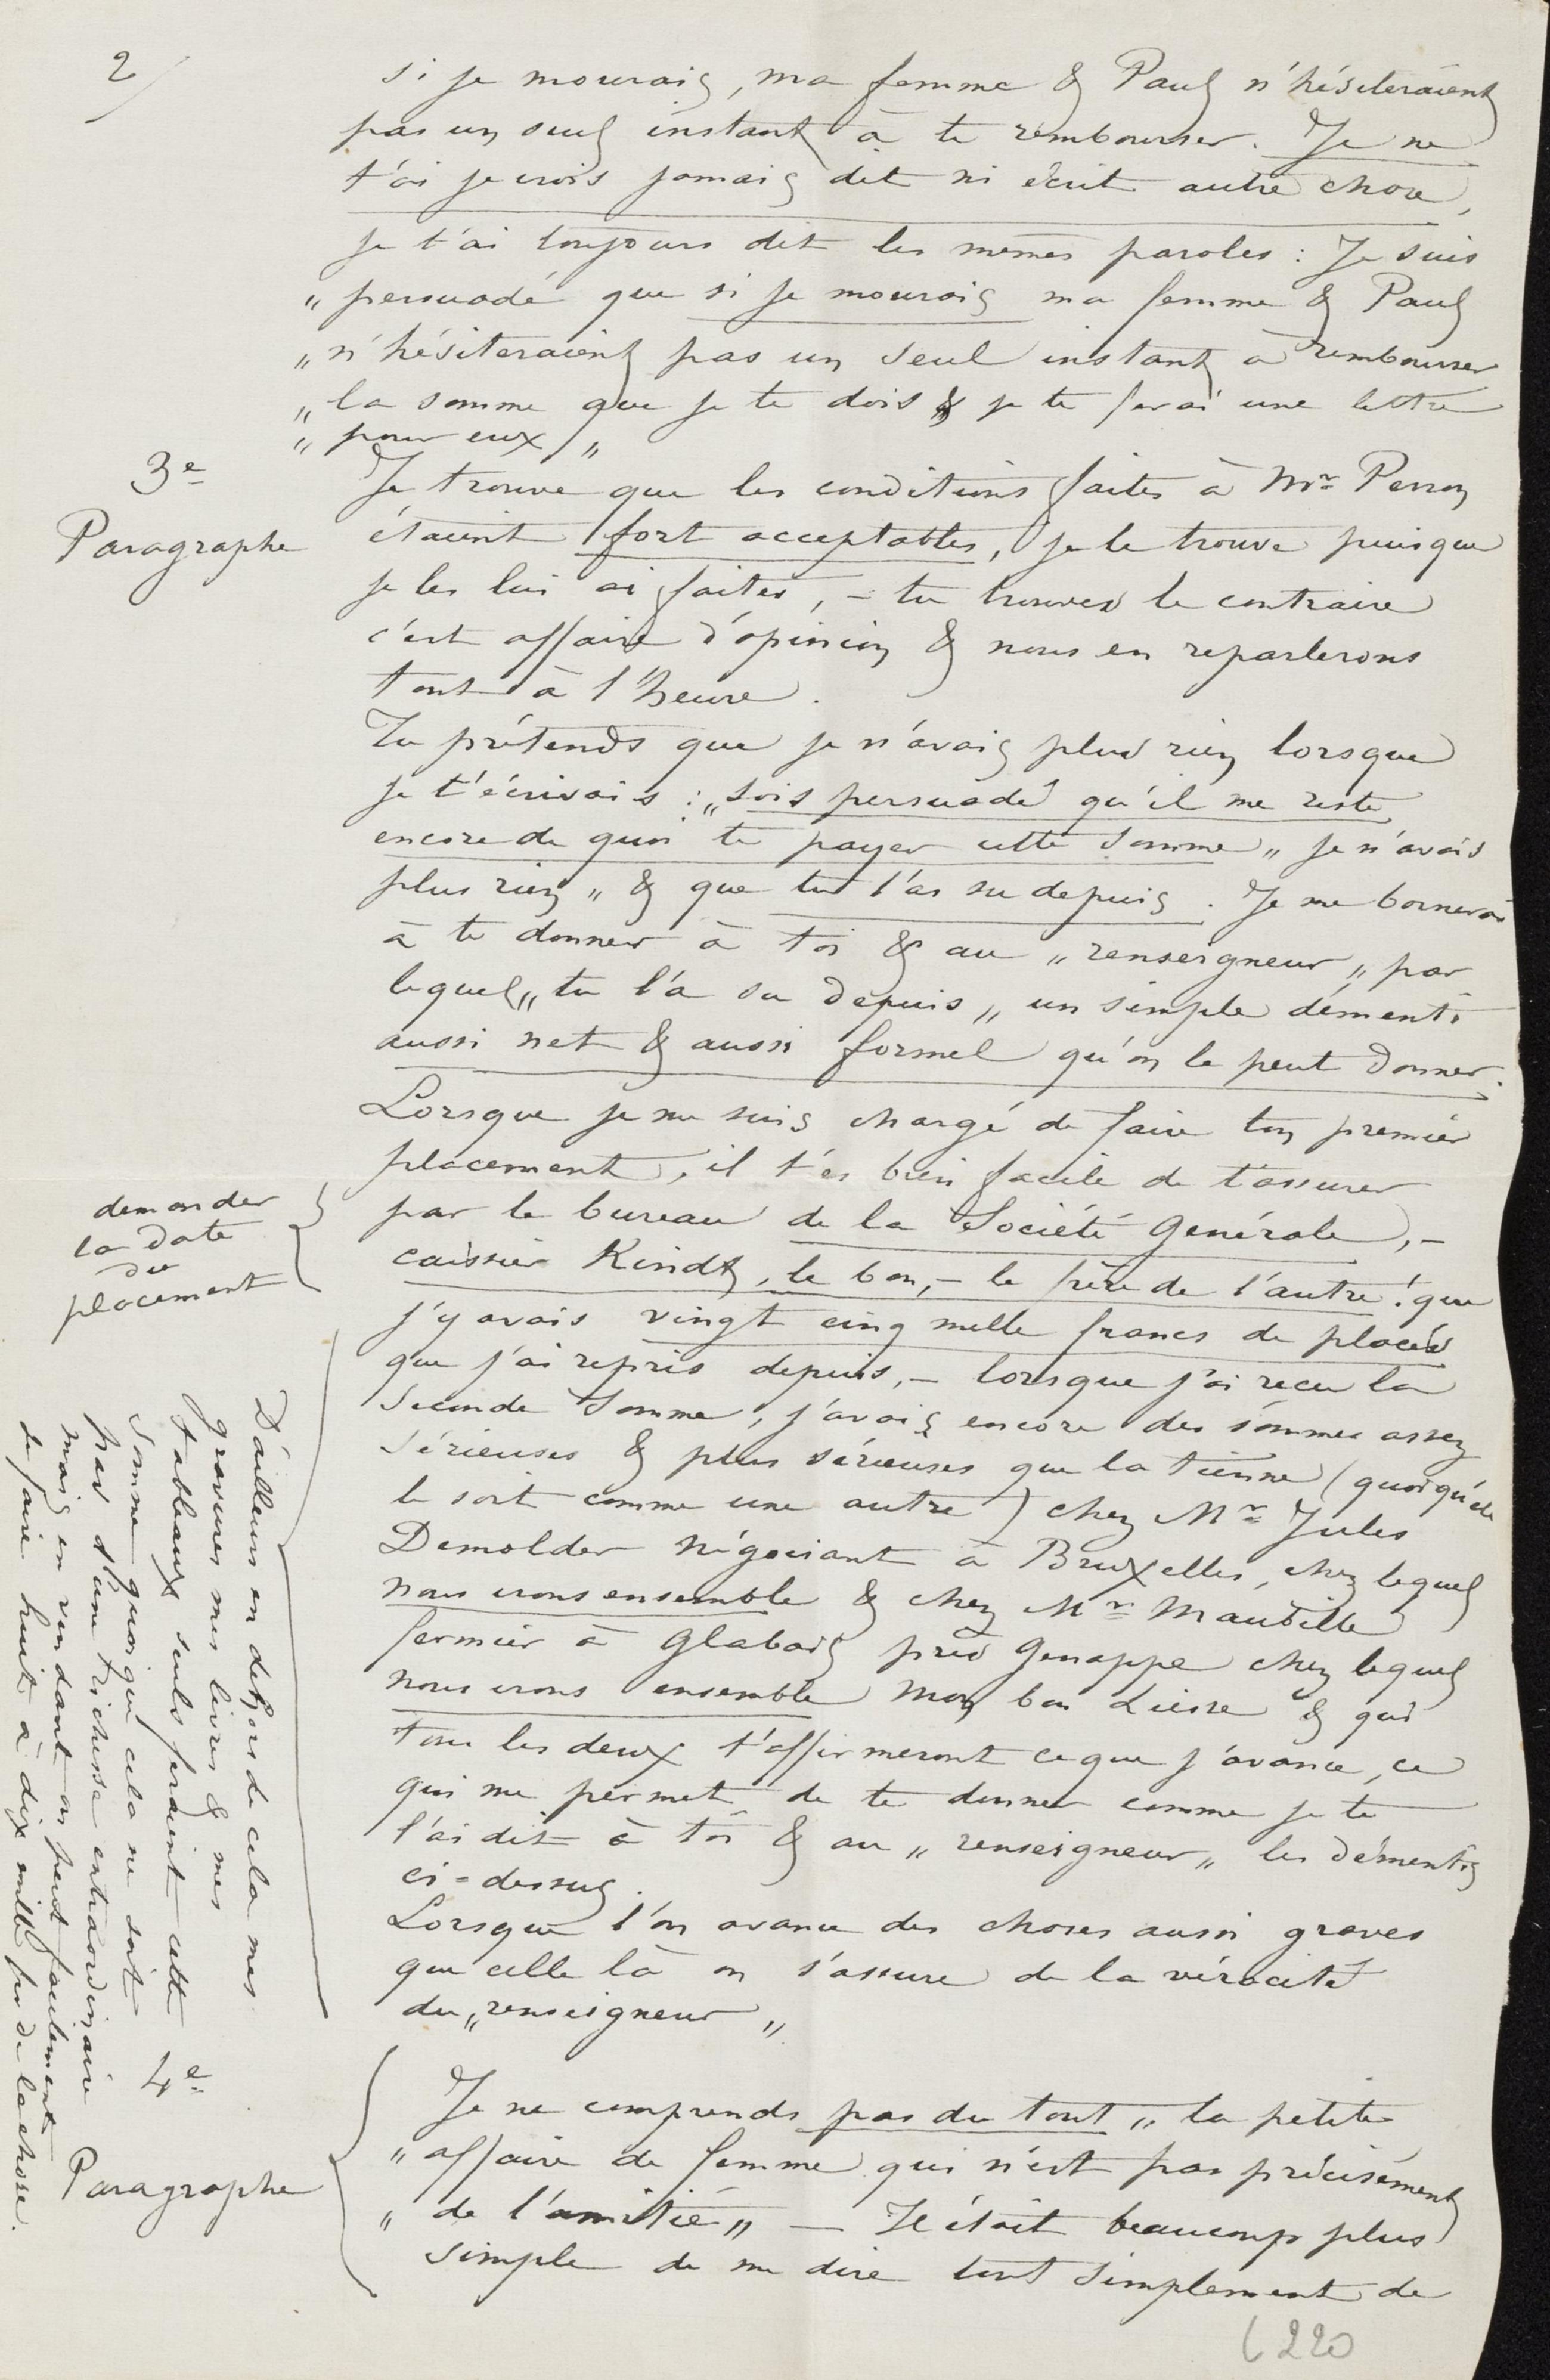 2/
si je mourais, ma femme & Paul n'hésiteraient
pas un seul instant à te rembourser. Je ne
t'ai je crois jamais dit ni écrit autre chose,
je t'ai toujours dit les mêmes paroles : Je suis
„ persuadé que si je mourais ma femme & Paul
„ n'hésiteraient pas un seul instant à rembourser
„ la somme que je te dois & je te ferai une lettre
„ pour eux „
3e
Paragraphe
Je trouve que les conditions faites à Mr Perron
étaient fort acceptables, je le trouve puisque
je les lui ai faites, – tu trouves le contraire
c'est affaire d'opinion & nous en reparlerons
tout à l'heure.
Tu prétends que je n'avais plus rien lorsque
je t'écrivais : „ sois persuadé qu'il me reste
encore de quoi te payer cette somme „ je n'avais
plus rien „ & que tu l'as su depuis. Je me bornerai
à te donner à toi & au „ renseigneur „ par
lequel „ tu l'a su depuis „ un simple démenti
aussi net & aussi formel qu'on le peut donner.
Lorsque je me suis chargé de faire ton premier
placement, il t'es bien facile de t'assurer
par le bureau de la Société Générale, –
caissier Kindt, le bon, – le frère de l'autre ! que
j'y avais vingt cinq mille francs de placés
que j'ai repris depuis, – lorsque j'ai recu la
seconde somme, j'avais encore des sommes assez
sérieuses & plus sérieuses que la tienne (quoiqu'elle
le soit comme une autre) chez Mr Jules
Demolder négociant à Bruxelles, chez lequel
nous irons ensemble & chez Mr Maubille
fermier à Glabais près Genappe chez lequel
nous irons ensemble mon bon Liesse & qui
tous les deux t'affirmeront ce que j'avance, ce
qui me permet de te donner comme je te
l'ai dit à toi & au „ renseigneur „ les démentis
ci-dessus.
Lorsque l'on avance des choses aussi graves
que celle là on s'assure de la véracité
du „ renseigneur „
demander
la date
du
placement
D'ailleurs en dehors de cela mes
gravures mes livres & mes
tableaux seuls feraient cette
somme quoique cela ne soit
pas d'une richesse extraordinaire
mais en vendant on peut facilement
se faire huit à dix mille frs de la chose.
4e
Paragraphe
Je ne comprends pas du tout „ la petite
„ affaire de femme qui n'est pas précisément
„ de l'amitié „ – Il était beaucoup plus
simple de me dire tout simplement de
220